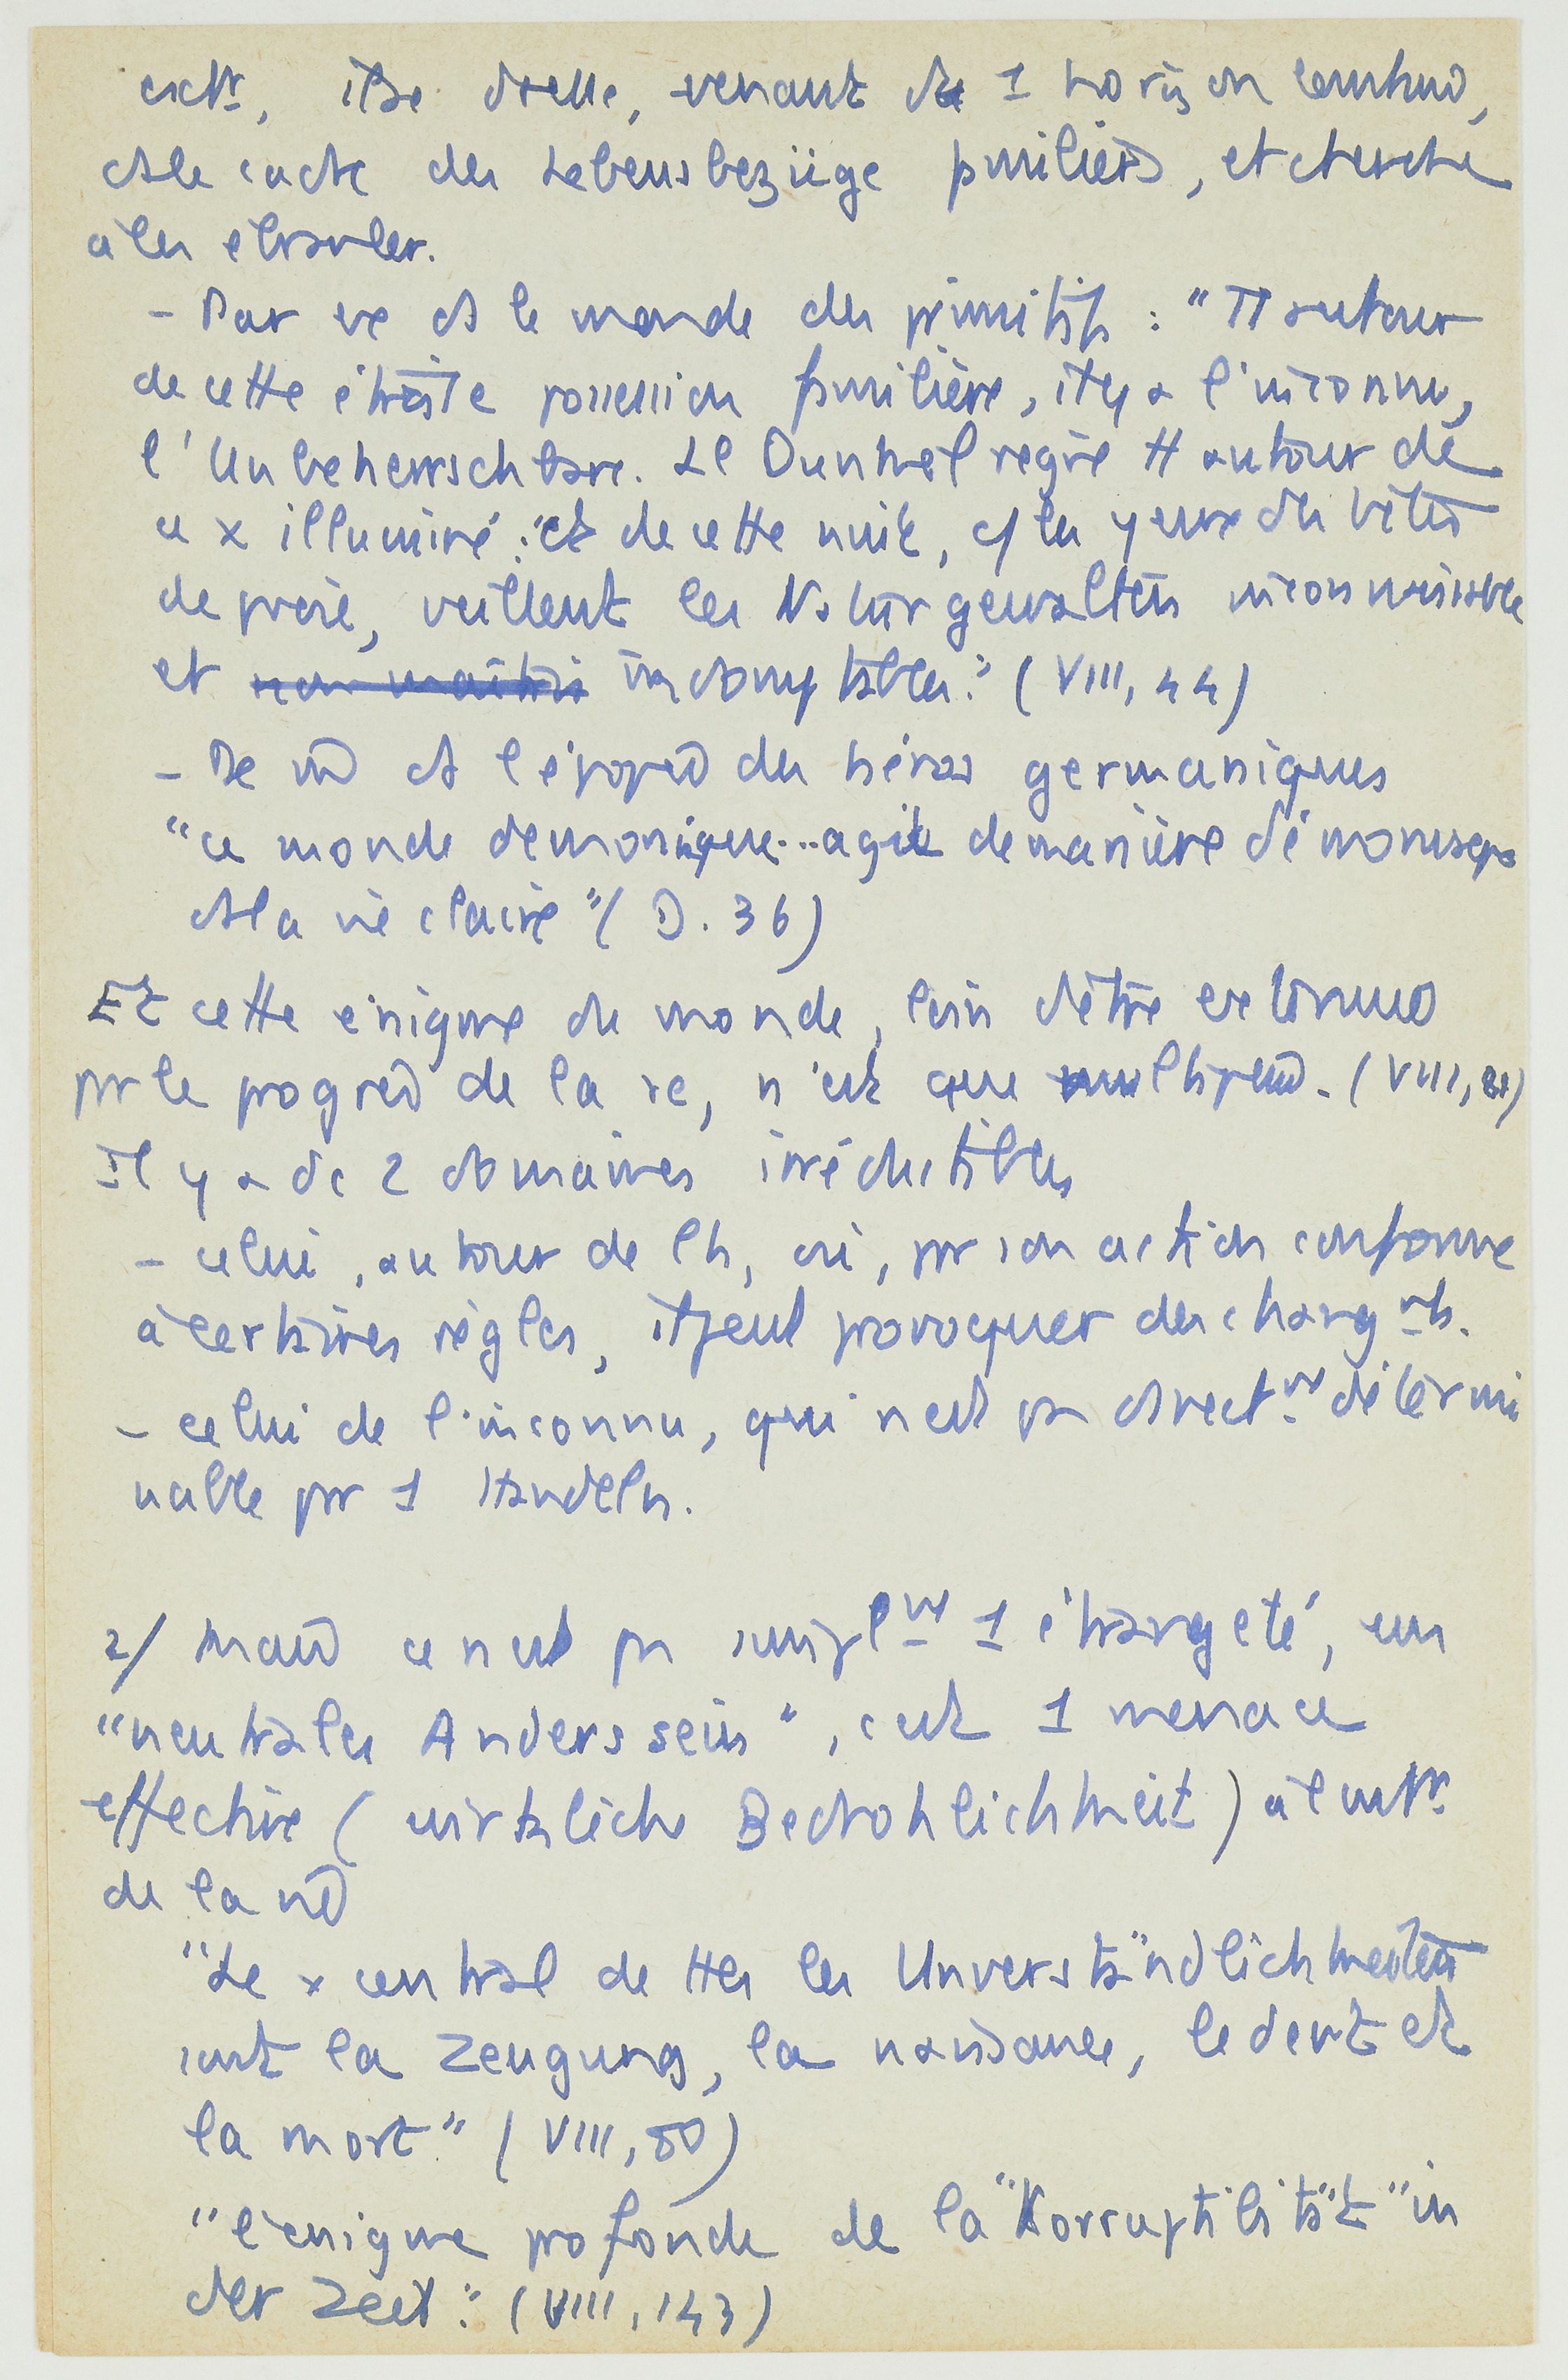 venant de 1 horizon
ds le cadre des Lebensbezüge familiers, et cherche
à les ébranler.
- Par ex ds le monde des primitifs : "Tt autour
de cette étroite possession familière, il y a l'inconnu,
l'Unbeherrschbare. Le Dunkel règne tt autour de
ce x illuminé ; et de cette nuit, c/ les yeux des bêtes
de proie, veillent les Naturgewalten inconnaissables
et non maîtris indomptables." (VIII, 44)
- De m̂ ds l'épopée des héros germaniques
"ce monde démonique...agit de manière démonique
ds la vie claire" (D. 36)
Et cette énigme du monde, loin d'être exténuée
pr le progrès de la sc, n'est que multipliée. (VIII, 81)
Il y a dc 2 domaines irréductibles
- celui, autour de l'h, où, pr son action conforme
à certaines règles, il peut provoquer des changmts.
- celui de l'inconnu, qui n'est pas directmt détermi
nable pr 1 Handeln.
2/ Mais ce n'est pas simplmt 1 étrangeté, un
"neutrales Anderssein", c'est 1 menace
effective (wirkliche Bedrohlichkeit) à l'intr
de la vie
"Le x central de ttes les Unverständlichkeiten
sont la Zeugung, la naissance, le devt et
la mort." (VIII, 50)
"l'énigme profonde de la "Korruptilität" in
der Zeit." (VIII, 143)